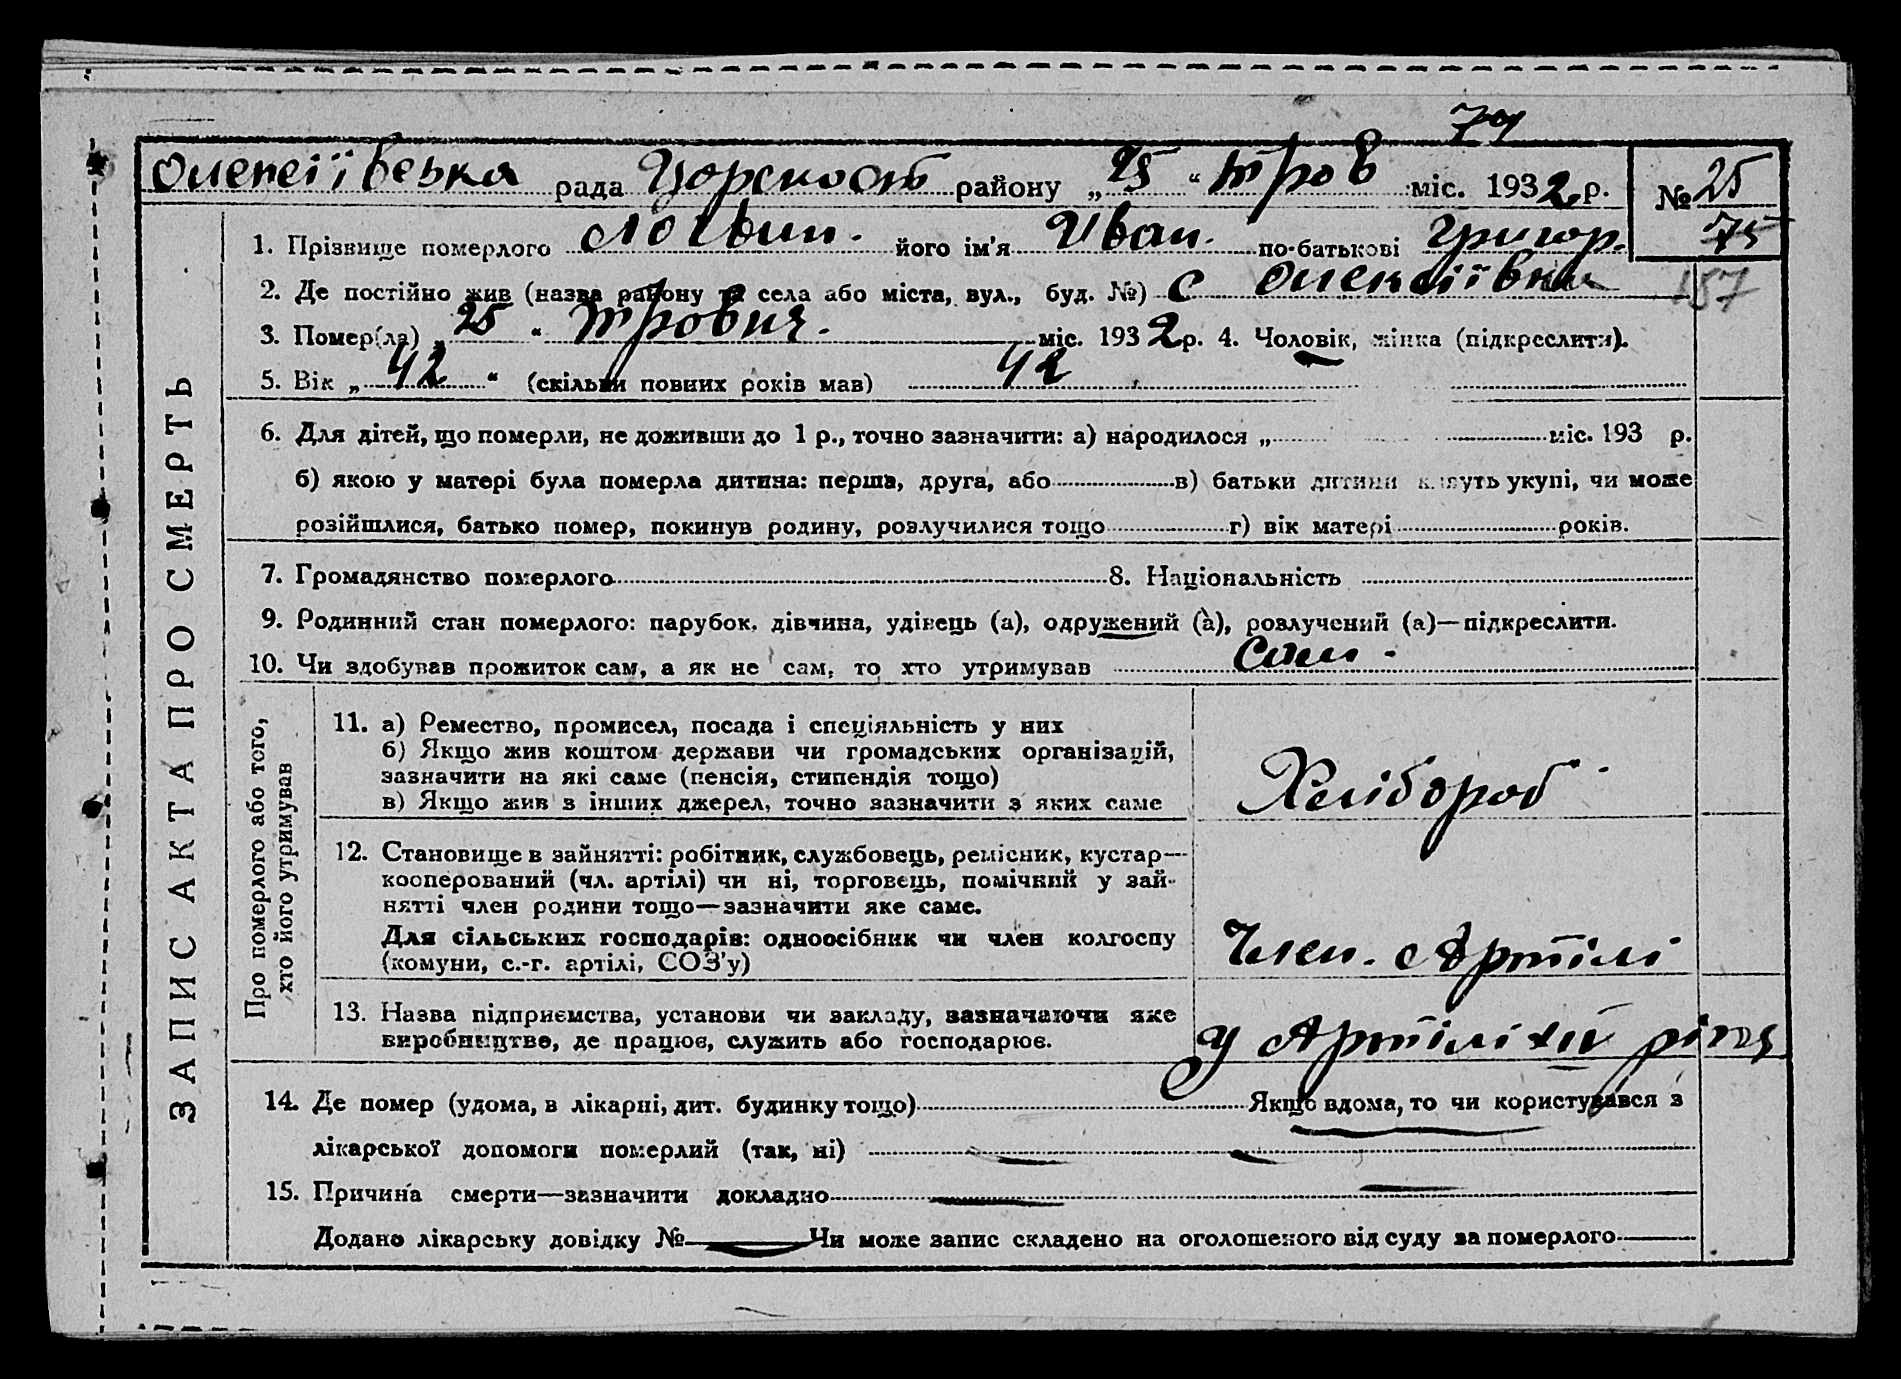 79
Олексіївська рада района „25“ трав міс. 1932 р. № 25
75
1. Прізвище померлого Логвин. його ім’я Иван. по-батькові Григор.
2. Де постійно жив (назва району та села або міста, вул., буд. №) с Олексіївки 157
3. Помер(ла) „25“ травня. міс. 1932 р. 4. Чоловік, жінка (підкреслити).
5. Вік „42“ (скільки повних років мав) 42
6. Для дітей, що померли, не доживши до 1 р., точно зазначити: а) народилося „ міс. 193 р.
б) якою у матері була померла дитина: перша, друга, або в) батьки дитини живуть укупі, чи може
розійшлися, батько помер, покинув родину, розлучилися тощо г) вік матері років.
7. Громадянство померлого 8. Національність
9. Родинний стан померлого: парубок, дівчина, удівець (а), одружений (а), розлучений (а)—підкреслити.
10. Чи здобував прожиток сам, а як не сам, то хто утримував Сам.
ЗАПИС АКТА ПРО СМЕРТЬ
Про померлого або того,
хто його утримував
11. а) Ремество, промисел, посада і спеціяльність у них
б) Якщо жив коштом держави чи громадських організацій,
зазначити на які саме (пенсія, стипендія тощо)
в) Якщо жив з інших джерел, точно зазначити з яких саме
Хлібороб
12. Становище в зайнятті: робітник, службовець, ремісник, кустар—
кооперований (чл. артілі) чи ні, торговець, помічний у зай-
нятті член родини тощо—зазначити яке саме.
Для сільських господарів: одноосібник чи член колгоспу
(комуни, с.-г. артілі, СОЗ’у)
Член. Артілі
13. Назва підприємства, установи чи закладу, зазначаючи яке
виробництво, де працює, служить або господарює.
у Артілі
14. Де помер (удома, в лікарні, дит. будинку тощо) Якщо вдома, то чи користувався з
лікарської допомоги померлий (так, ні)
15. Причина смерти—зазначити докладно
Додано лікарську довідку № Чи може запис складено на оголошеного від суду за померлого